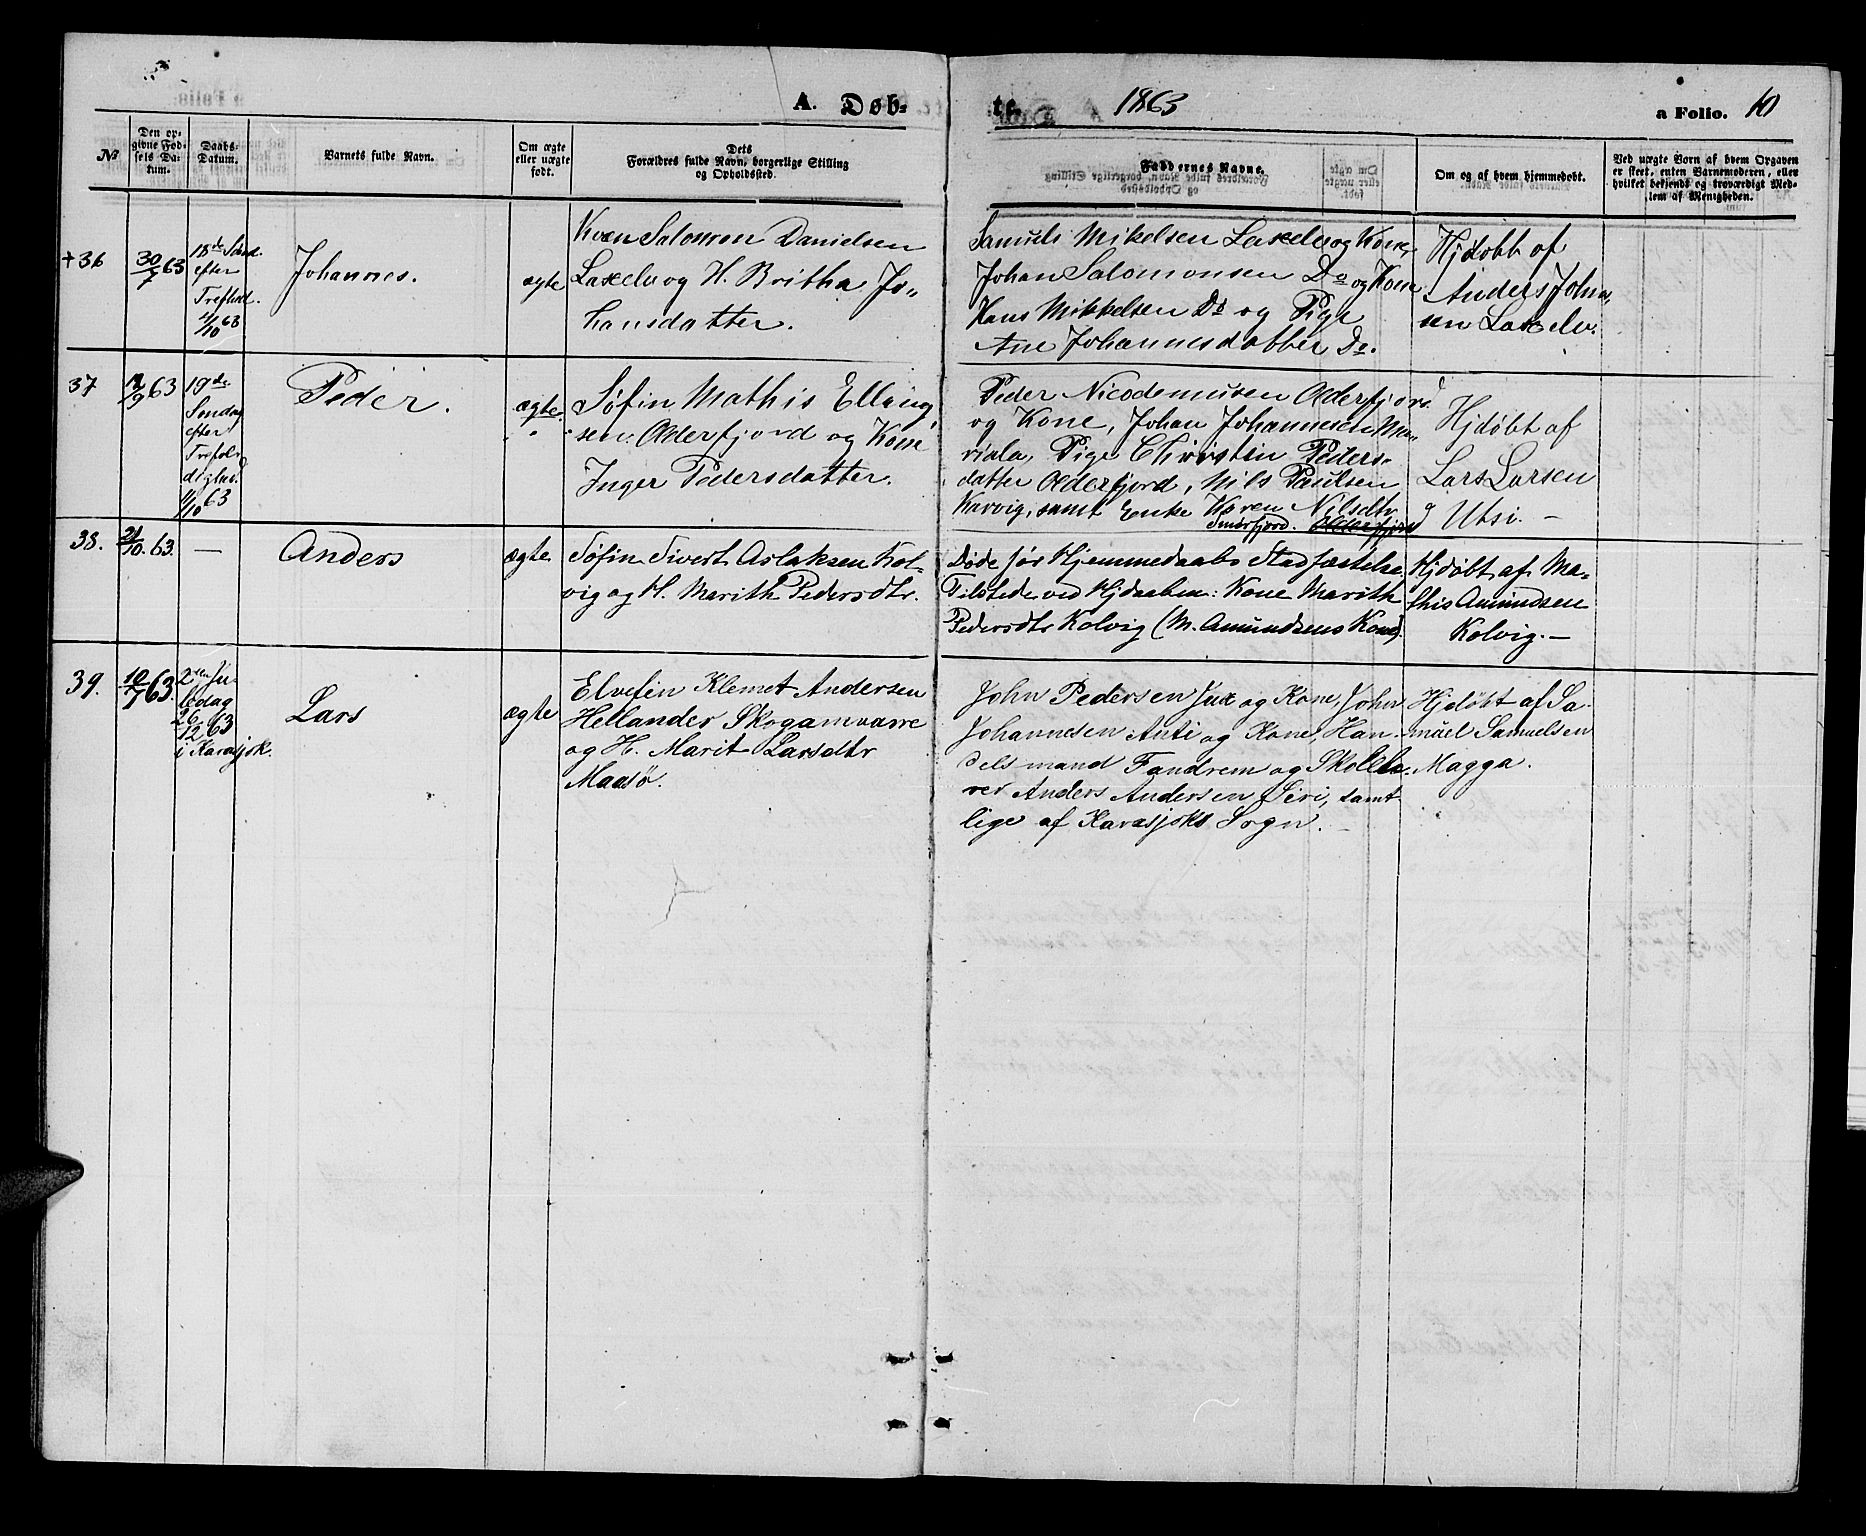 A. Døb-
te. 1863
a Folio. 10
No
Den op-
givne Fød-
sels Da-
tum.
Daabs-
Datum.
Barnets fulde Navn.
Om ægte
eller uægte
født.
Dets
Forældres fulde Navn, borgerlige Stilling
og Opholdssted.
Faddernes Navne.
Om og af hvem hjemmedøbt.
Ved uægte Børn af hvem Opgaven
er skeet, enten Barnemoderen, eller
hvilket bekjendt og troværdigt Med-
lem af Menigheden.
+36
30/7 63
18de Sønd.
efter
Trefhed.
4/10 63
Johannes.
ægte
Kvæn Salomon Danielsen
Laxelv og H. Britha Jo-
hansdatter.
Samuel Mikelsen Laxelv og Kone,
Johan Salomonsen Do og Kone
Hans Mikkelsen Do og Pige
Ane Johannesdatter Do.
Hjdøbt af
Anders Johan
sen Laxelv.
37
/9 63
19de
Søndag
efter
Trefol-
dighed.
11/10 63
Peder.
ægte.
Søfin Mathis Elling
sen Olderfjord og Kone
Inger Pedersdatter.
Peder Nicodemusen Olderfjord
og Kone, Johan Johannesen
Pige Christin Peders-
datter Olderfjord, Nils Paulsen
Karvig, samt Enke Karen Nilsdtr.
Smørfjord. Olderfjord
Hjdøbt af
Lars Larsen
Utsi. —
38.
21/10. 63.
—
Anders
ægte
Søfin Sivert Aslaksen Kol-
vig og H. Marith Pedersdtr.
Døde før Hjemmedaabs Stadfæstelse.
Tilstede ved Hjdaaben: Kone Marith
Pedersdtr Kolvig (M. Amundsens Kone).
Hjdøbt af Ma-
this Amundsen
Kolvig. —
39.
10/7 63.
2den Ju-
ledag
26/12 63
i Karasjok.
Lars
ægte
Elvefin Klemet Andersen
Hellander Skoganvarre
og H. Marit Larsdtr
Maasø.
John Pedersen Jux og Kone, John
Johannesen Anti og Kone, Han-
delsmand Fandrem og Skolelæ-
rer Anders Andersen Siri, samt
lige af Karasjoks Sogn. —
Hjdøbt af Sa-
muel Samuelsen
Magga.